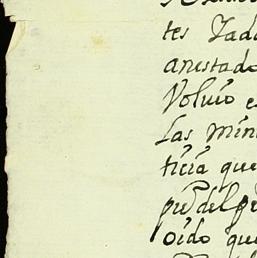 tes Zada
anestado
Volvió e
Las min
ticia que
del pe
oido que